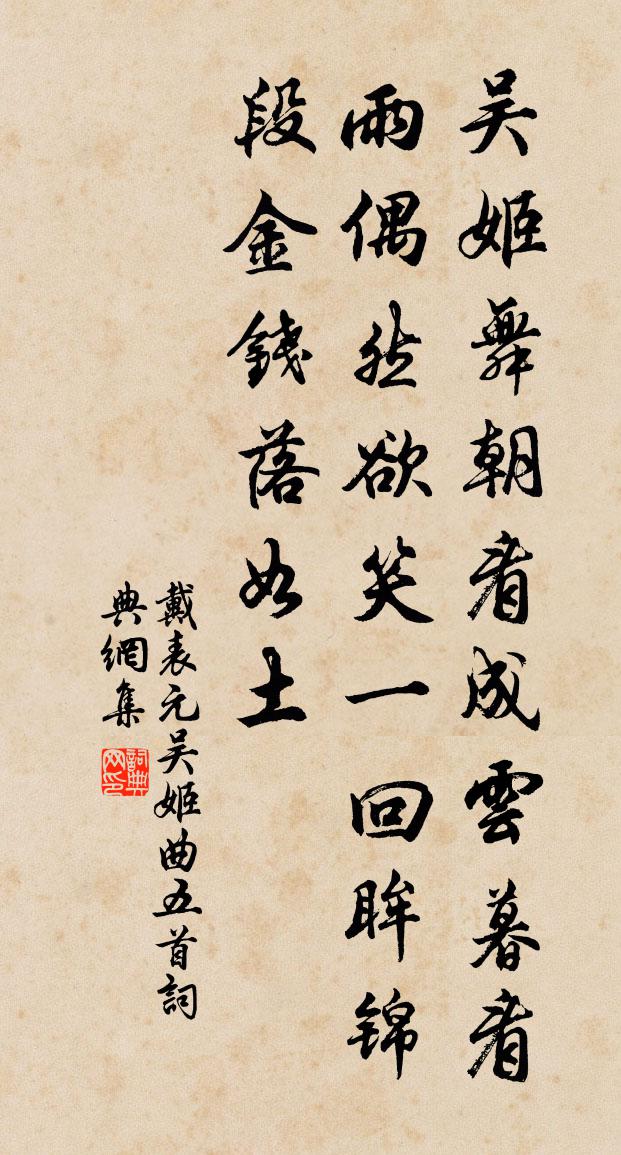 吴姬舞朝看成雲暮看
雨偶然欲笑一回眸錦
段金錢落如土
戴表元吴姬曲五首詞
典網集
詞典
网印